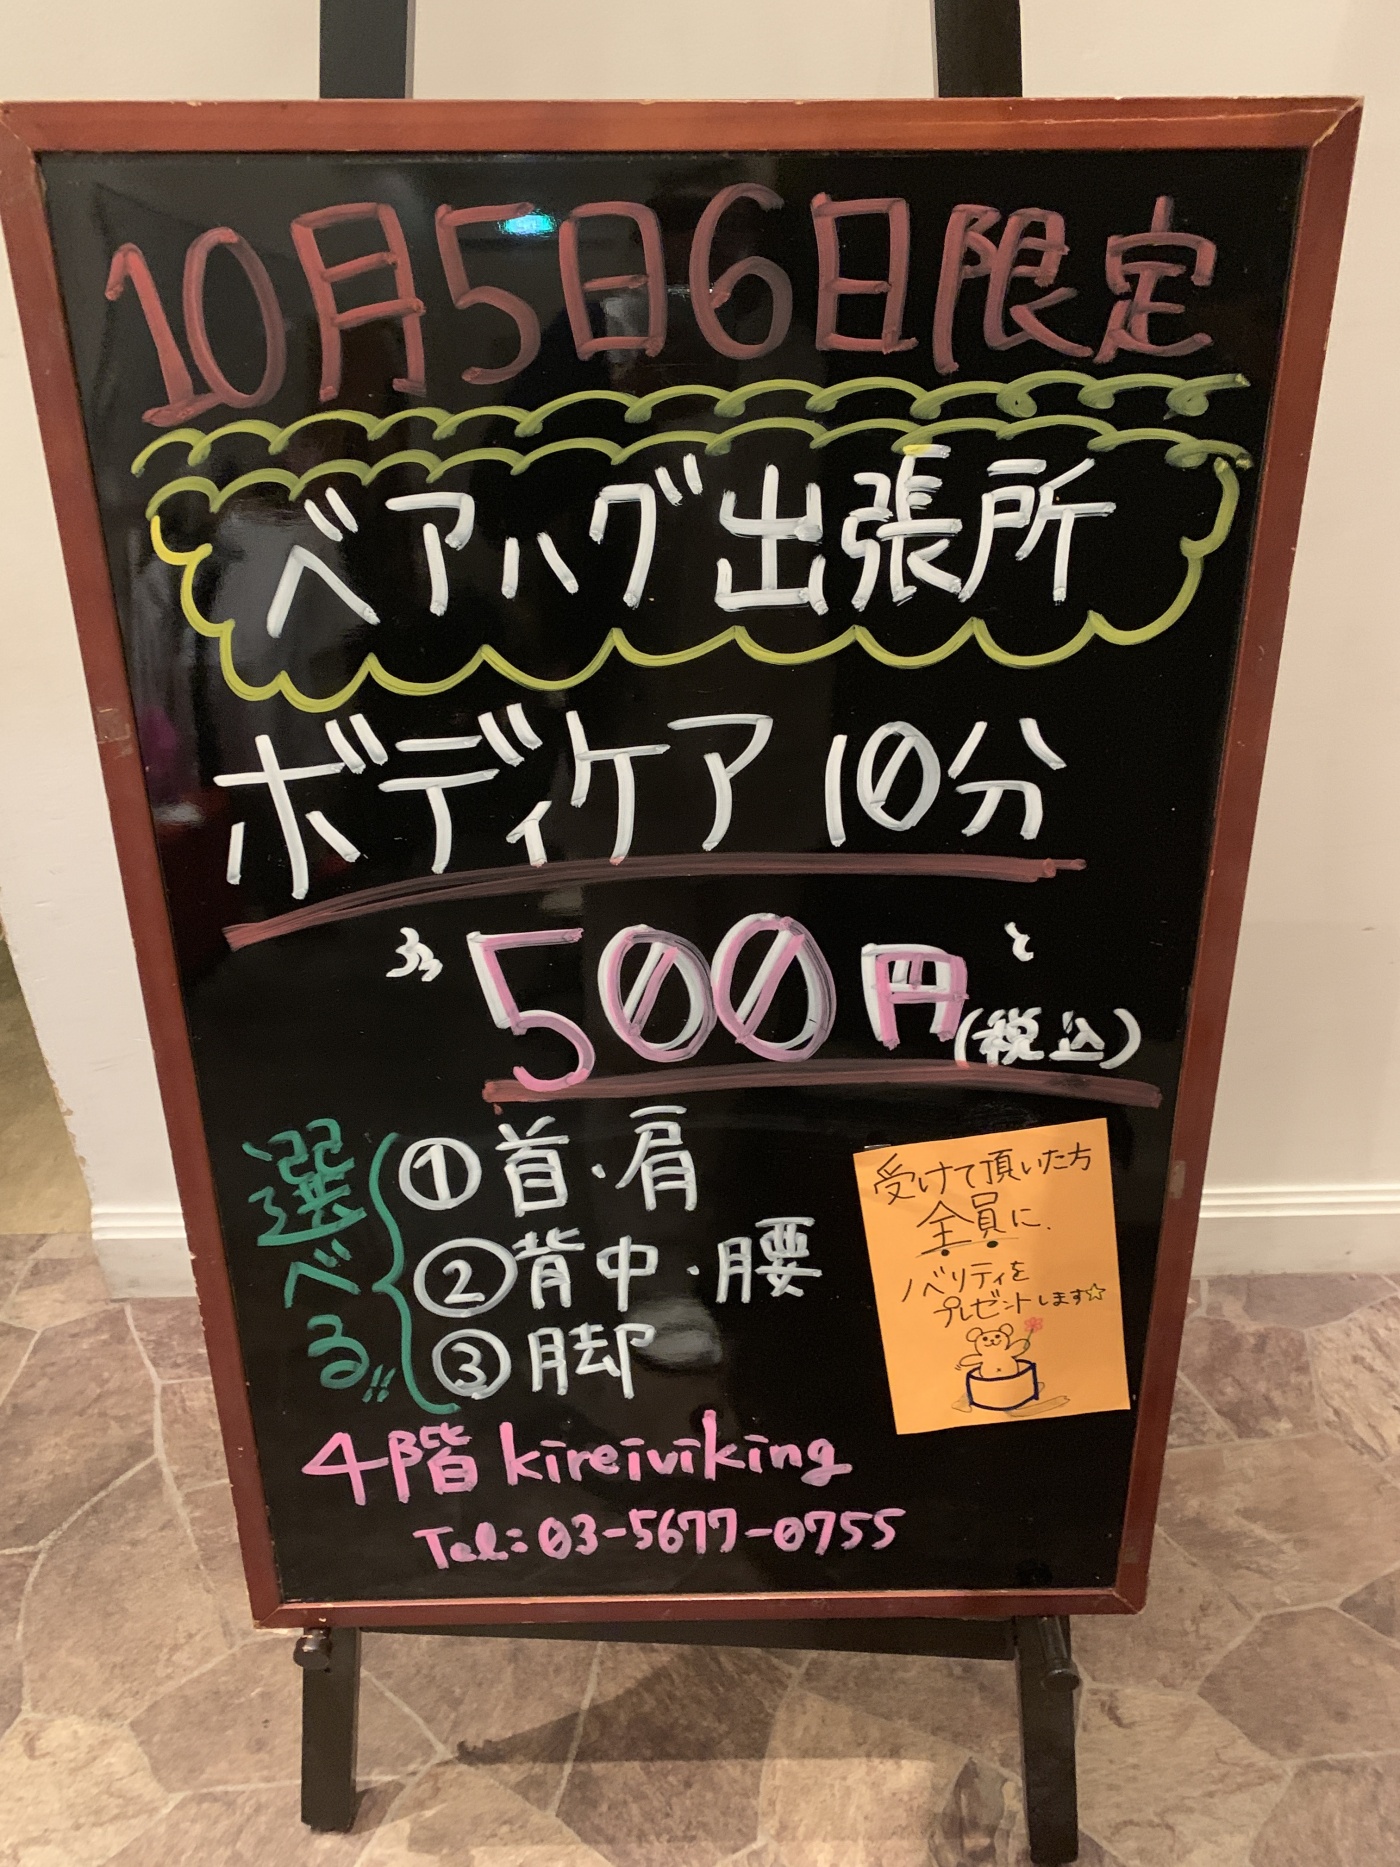 10月5日6日限定
ベアハグ出張所
ボディケア 10分
500円(税込)
選べる!!
①首・肩
②背中・腰
③脚
受けて頂いた方
全員に、
ノベリティを
プレゼントします☆
4階 kireiviking
Tel:03-5677-0755